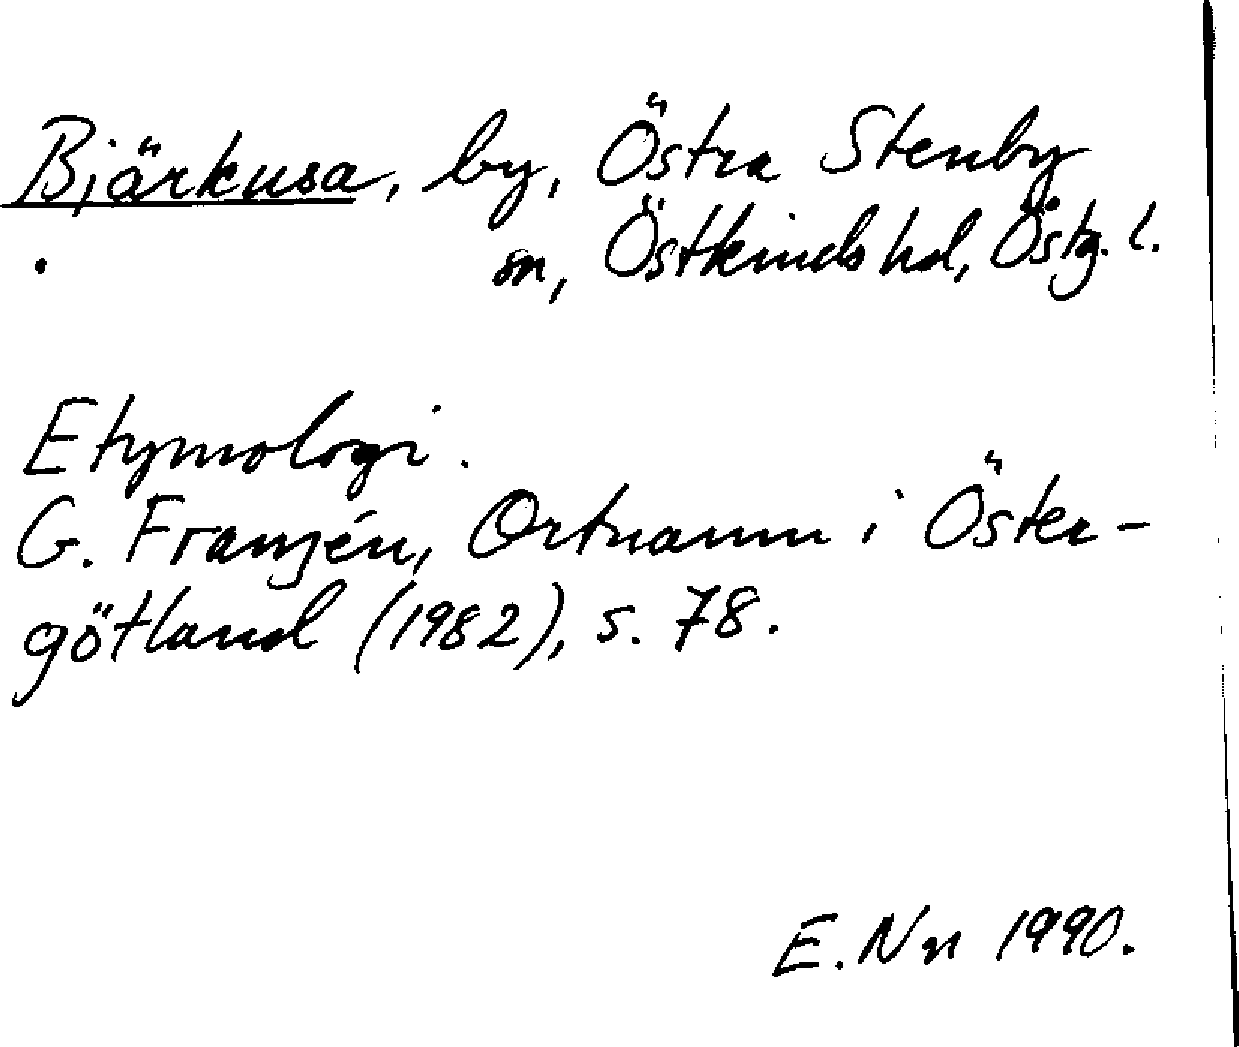 Bjärkusa, by, Östra Stenby
sn, Östkinds hd, Östg. l.
Etymologi.
G. Franzén, Ortnamn i Öster-
götland (1982), s. 78.
E. Nn 1990.